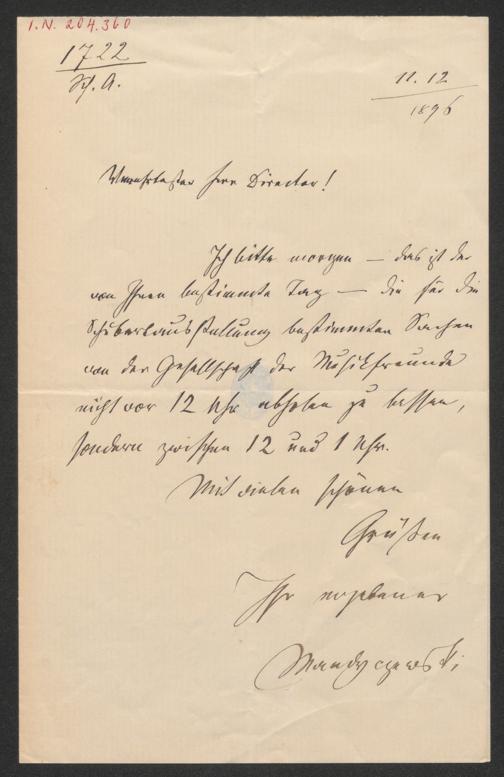 I.N. 204.360
1722
Sch. A.
11. 12
1896
Verehrtester Herr Director!
Ich bitte morgen — das ist der
von Ihnen bestimmte Tag — die für die
Schubertausstellung bestimmten Sachen
von der Gesellschaft der Musikfreunde
nicht vor 12 Uhr abholen zu lassen,
sondern zwischen 12 und 1 Uhr.
Mit vielen schönen
Grüßen
Ihr ergebener
Mandyczewski